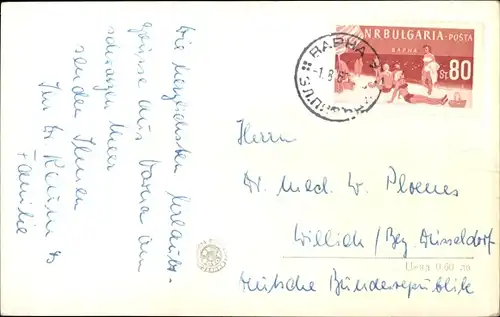 Die herzlichsten Urlaubs-
grüsse aus Varna am
schwarzen Meer
senden Ihnen
Ihr Dr
Familie
N.R. BULGARIA-POSTA
ВАРНА
St. 80
ВАРНА
Herrn
Dr. med. W. Ploenes
Willich / Bez. Düsseldorf
Цена 0.60 лв
Deutsche Bundesrepublik